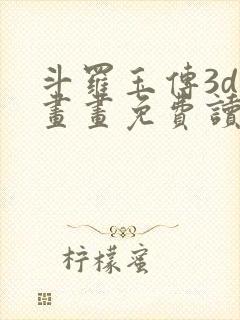 斗羅玉傳3d
畫畫免費讀
柠檬蜜